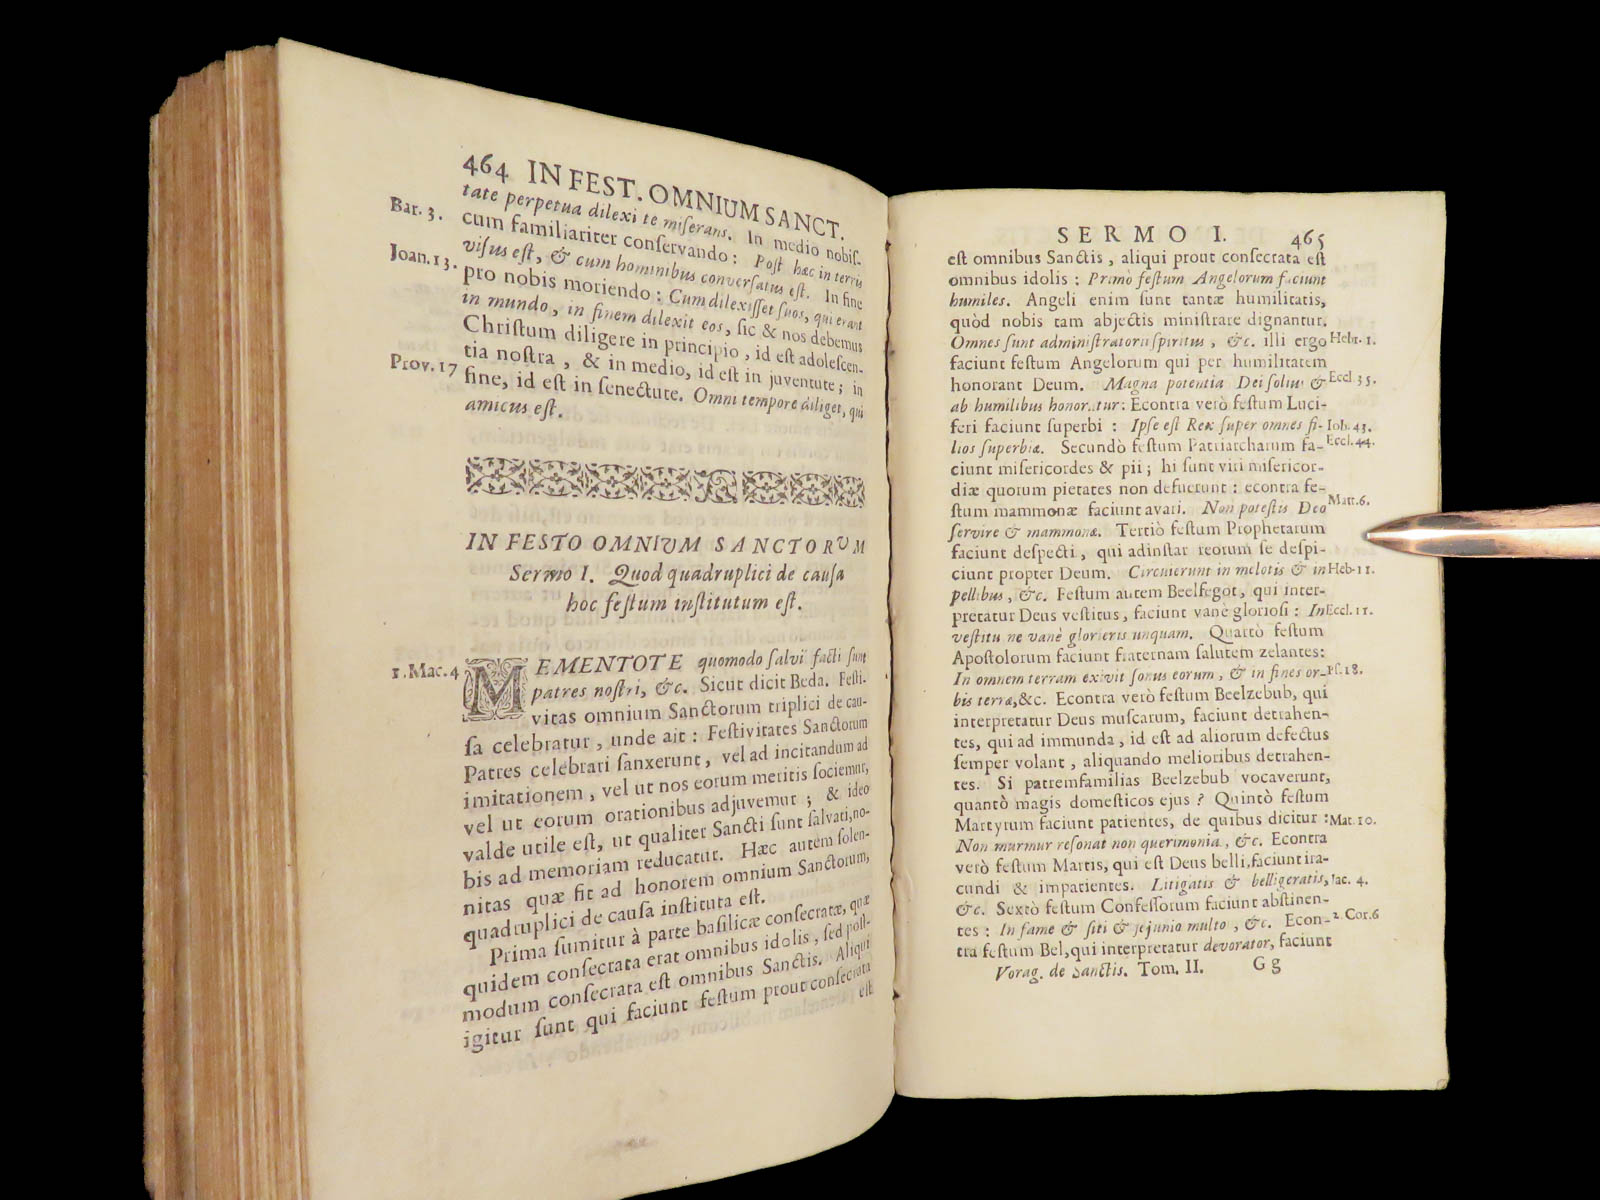 464 IN FEST. OMNIUM SANCT.
tate perpetua dilexi te miſerans. In medio nobiſ-
Bar. 3. cum familiariter conſervando : Poſt hæc in terris
viſus eſt, & cum hominibus converſatus eſt. In fine
Joan. 13. pro nobis moriendo : Cum dilexiſſet ſuos, qui erant
in mundo, in finem dilexit eos, ſic & nos debemus
Chriſtum diligere in principio, id eſt adoleſcen-
tia noſtra, & in medio, id eſt in juventute ; in
Prov. 17 fine, id eſt in ſenectute. Omni tempore diliget, qui
amicus eſt.
IN FESTO OMNIVM SANCTORVM
Sermo I. Quod quadruplici de cauſa
hoc feſtum inſtitutum eſt.
1. Mac. 4 MEMENTOTE quomodo ſalvi facti ſunt
patres noſtri, &c. Sicut dicit Beda. Feſti-
vitas omnium Sanctorum triplici de cau-
ſa celebratur, unde ait : Feſtivitates Sanctorum
Patres celebrari ſanxerunt, vel ad incitandum ad
imitationem, vel ut nos eorum meritis ſociemur,
vel ut eorum orationibus adjuvemur ; & ideo
valde utile eſt, ut qualiter Sancti ſunt ſalvati, no-
bis ad memoriam reducatur. Hæc autem ſolen-
nitas quæ fit ad honorem omnium Sanctorum,
quadruplici de cauſa inſtituta eſt.
Prima ſumitur à parte baſilicæ conſecratæ, quæ
quidem conſecrata erat omnibus idolis, ſed poſt-
modum conſecrata eſt omnibus Sanctis. Aliqui
igitur ſunt qui faciunt feſtum prout conſecrata
eſt
SERMO I. 465
eſt omnibus Sanctis, aliqui prout conſecrata eſt
omnibus idolis : Primò feſtum Angelorum faciunt
humiles. Angeli enim ſunt tantæ humilitatis,
quòd nobis tam abjectis miniſtrare dignantur.
Omnes ſunt adminiſtratorii ſpiritus, &c. illi ergo Hebr. 1.
faciunt feſtum Angelorum qui per humilitatem
honorant Deum. Magna potentia Dei ſolius & Eccl. 35.
ab humilibus honoratur: Econtra verò feſtum Luci-
feri faciunt ſuperbi : Ipſe eſt Rex ſuper omnes fi- Iob. 43.
lios ſuperbiæ. Secundò feſtum Patriarcharum fa- Eccl. 44.
ciunt miſericordes & pii ; hi ſunt viri miſericor-
diæ quorum pietates non defuerunt : econtra fe-
ſtum mammonæ faciunt avari. Non poteſtis Deo Matt. 6.
ſervire & mammonæ. Tertiò feſtum Prophetarum
faciunt deſpecti, qui adinſtar reorum ſe deſpi-
ciunt propter Deum. Circuierunt in melotis & in Heb. 11.
pellibus, &c. Feſtum autem Beelfegor, qui inter-
pretatur Deus veſtitus, faciunt vanè glorioſi : In Eccl. 11.
veſtitu ne vanè glorieris unquam. Quartò feſtum
Apoſtolorum faciunt fraternam ſalutem zelantes:
In omnem terram exivit ſonus eorum, & in fines or- Pſ. 18.
bis terræ, &c. Econtra verò feſtum Beelzebub, qui
interpretatur Deus muſcarum, faciunt detrahen-
tes, qui ad immunda, id eſt ad aliorum defectus
ſemper volant, aliquando melioribus detrahen-
tes. Si patremfamilias Beelzebub vocaverunt,
quantò magis domeſticos ejus ? Quintò feſtum
Martyrum faciunt patientes, de quibus dicitur : Mat. 10.
Non murmur reſonat non querimonia, &c. Econtra
verò feſtum Martis, qui eſt Deus belli, faciunt ira-
cundi & impatientes. Litigatis & belligeratis, Jac. 4.
&c. Sextò feſtum Confeſſorum faciunt abſtinen-
tes : In fame & ſiti & jejunio multo, &c. Econ- 2. Cor. 6
tra feſtum Bel, qui interpretatur devorator, faciunt
Vorag. de Sanctis. Tom. II. Gg